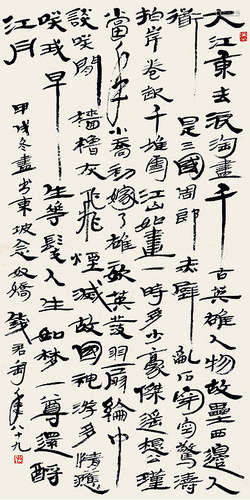 大江東去浪淘盡千古英雄人物故壘西邊人
衟是三國周郎赤壁亂石穿空驚濤
拍岸卷起千堆雪江山如畫一時多少豪傑遥想公瑾
當年小喬初嫁了雄姿英發羽扇綸巾
談咲間檣櫓灰飛煙滅故國神游多情應
咲我早生華髮人生如夢一尊還酹
江月
甲戌冬盡書東坡念奴嬌錢君匋年八十九